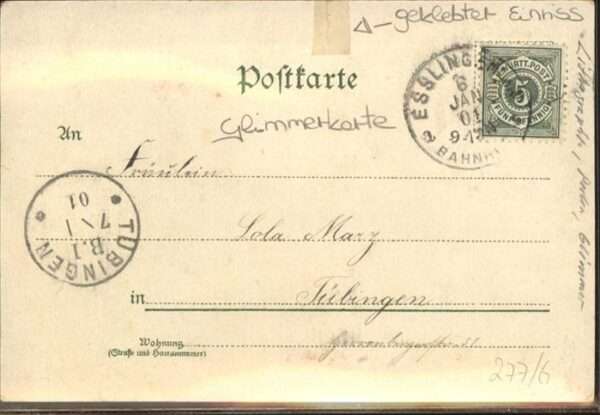 geklebter Einriss
Postkarte
Glimmerkarte
An
Fräulein
Lola Marz
in Tübingen
Wohnung
(Straße und Hausnummer)
277/6
ESSLINGEN
6
JAN
01
9-12
BAHNH
K. WÜRTT. POST
5
FÜNF PFENNIG
TÜBINGEN
B.1
7 1
01